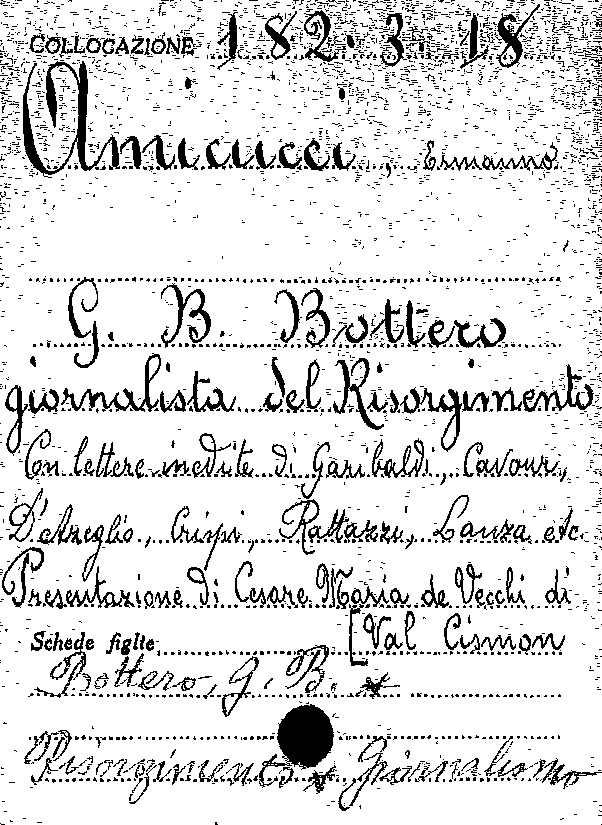 COLLOCAZIONE 182.3.18
Amicucci, Ermanno
G. B. Bottero
giornalista del Risorgimento
Con lettere inedite di Garibaldi, Cavour,
D'Azeglio, Crispi, Rattazzi, Lanza etc.
Presentazione di Cesare Maria de Vecchi di
[Val Cismon
Schede figlie
Bottero, G. B. *
Risorgimento * Giornalismo